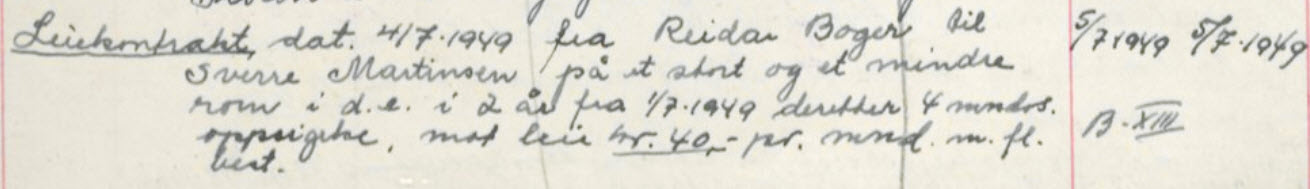 Leiekontrakt, dat. 4/7.1949 fra Reidar Boger til 5/7 1949 5/7.1949
Sverre Martinsen på et stort og et mindre
rom i d.e. i 2 år fra 1/7.1949 deretter 4 mndrs.
oppsigelse, mot leie kr. 40,- pr. mnd. m. fl. B-XIII
best.